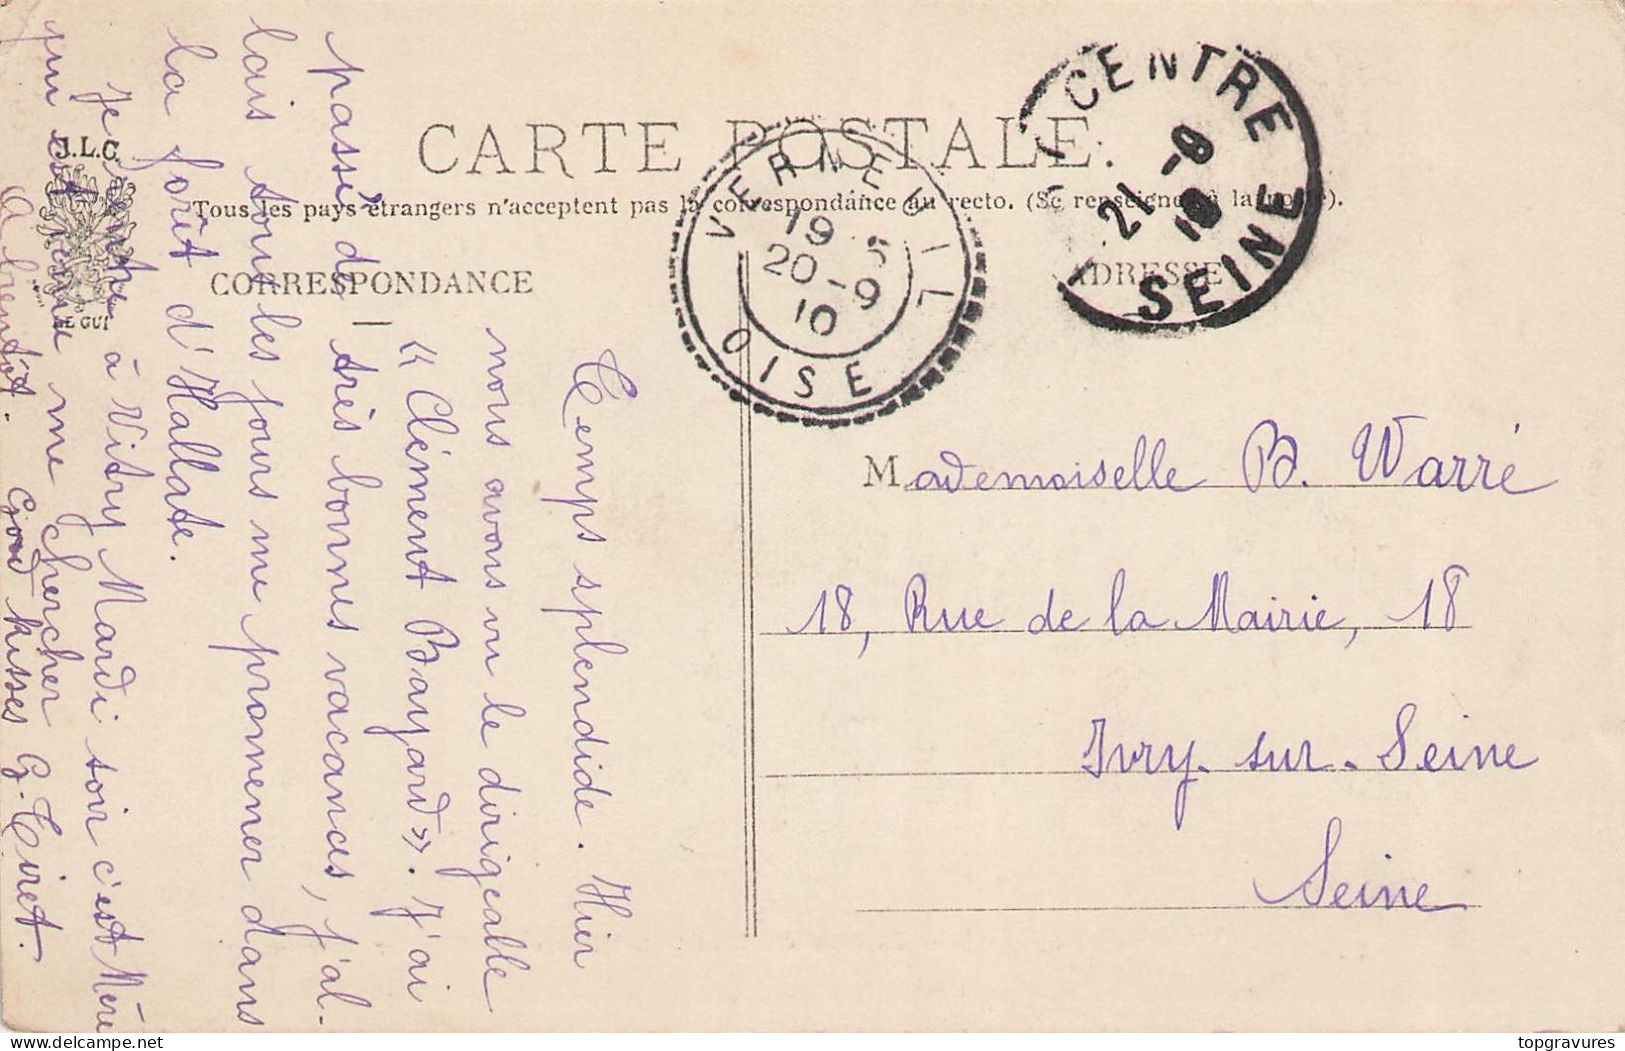 CARTE POSTALE.
Tous les pays étrangers n'acceptent pas la correspondance au recto. (Se renseigner à la poste).
CORRESPONDANCE
ADRESSE
J.L.C.
LE GUI
VERNEUIL
19
20-9
10
OISE
CENTRE
21 -9
10
SEINE
Temps splendide. Hier
nous avons vu le dirigeable
« Clément Bayard ». J'ai
passé de très bonnes vacances, j'al-
lais tout les jours me promener dans
la forêt d'Hallate.
Je rentre à Vitry Mardi soir c'est Mère
qui est venu me chercher
A bientôt. Good kisses G. Tiret.
Mademoiselle B. Warré
18, Rue de la Mairie, 18
Ivry-sur-Seine
Seine
topgravures